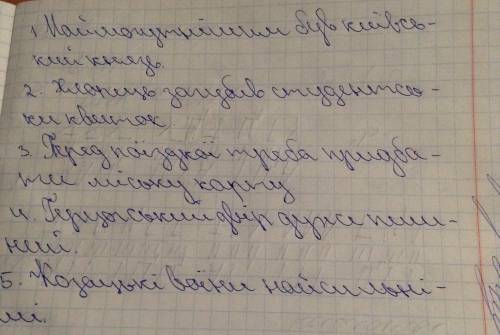 1. Наймогутнішим був київсь-
кий князь.
2. Хлопець загубив студентсь-
ки квиток
3. Перед поїздкої треба придба-
ти міську карту
4. Герцогський двір дуже пиш-
ний.
5. Козацькі воїни найсильні-
мі.